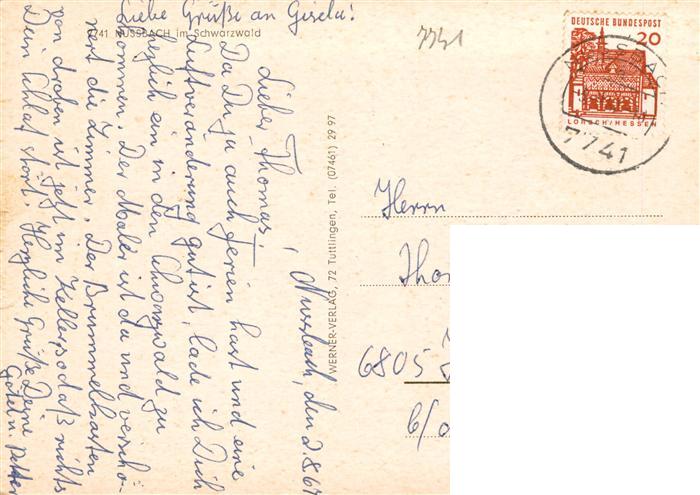 Liebe Grüße an Gisela!
7741 NUSSBACH im Schwarzwald
7741
DEUTSCHE BUNDESPOST
20
LORSCH/HESSEN
7741
Nussbach, den 2.8.67
Lieber Thomas!
Da Du ja auch Ferien hast und eine
Luftveränderung gut ist, lade ich Dich
herzlich ein in den Schwarzwald zu
kommen. Der Maler ist da und verschö-
nert die Zimmer. Der Brummelkasten
von droben ist jetzt im Keller sodaß nichts
Dein Schlaf stört. Herzliche Grüße Deine
WERNER-VERLAG, 72 Tuttlingen, Tel. (07461) 29 97
Herrn
Tho
6805
c/o